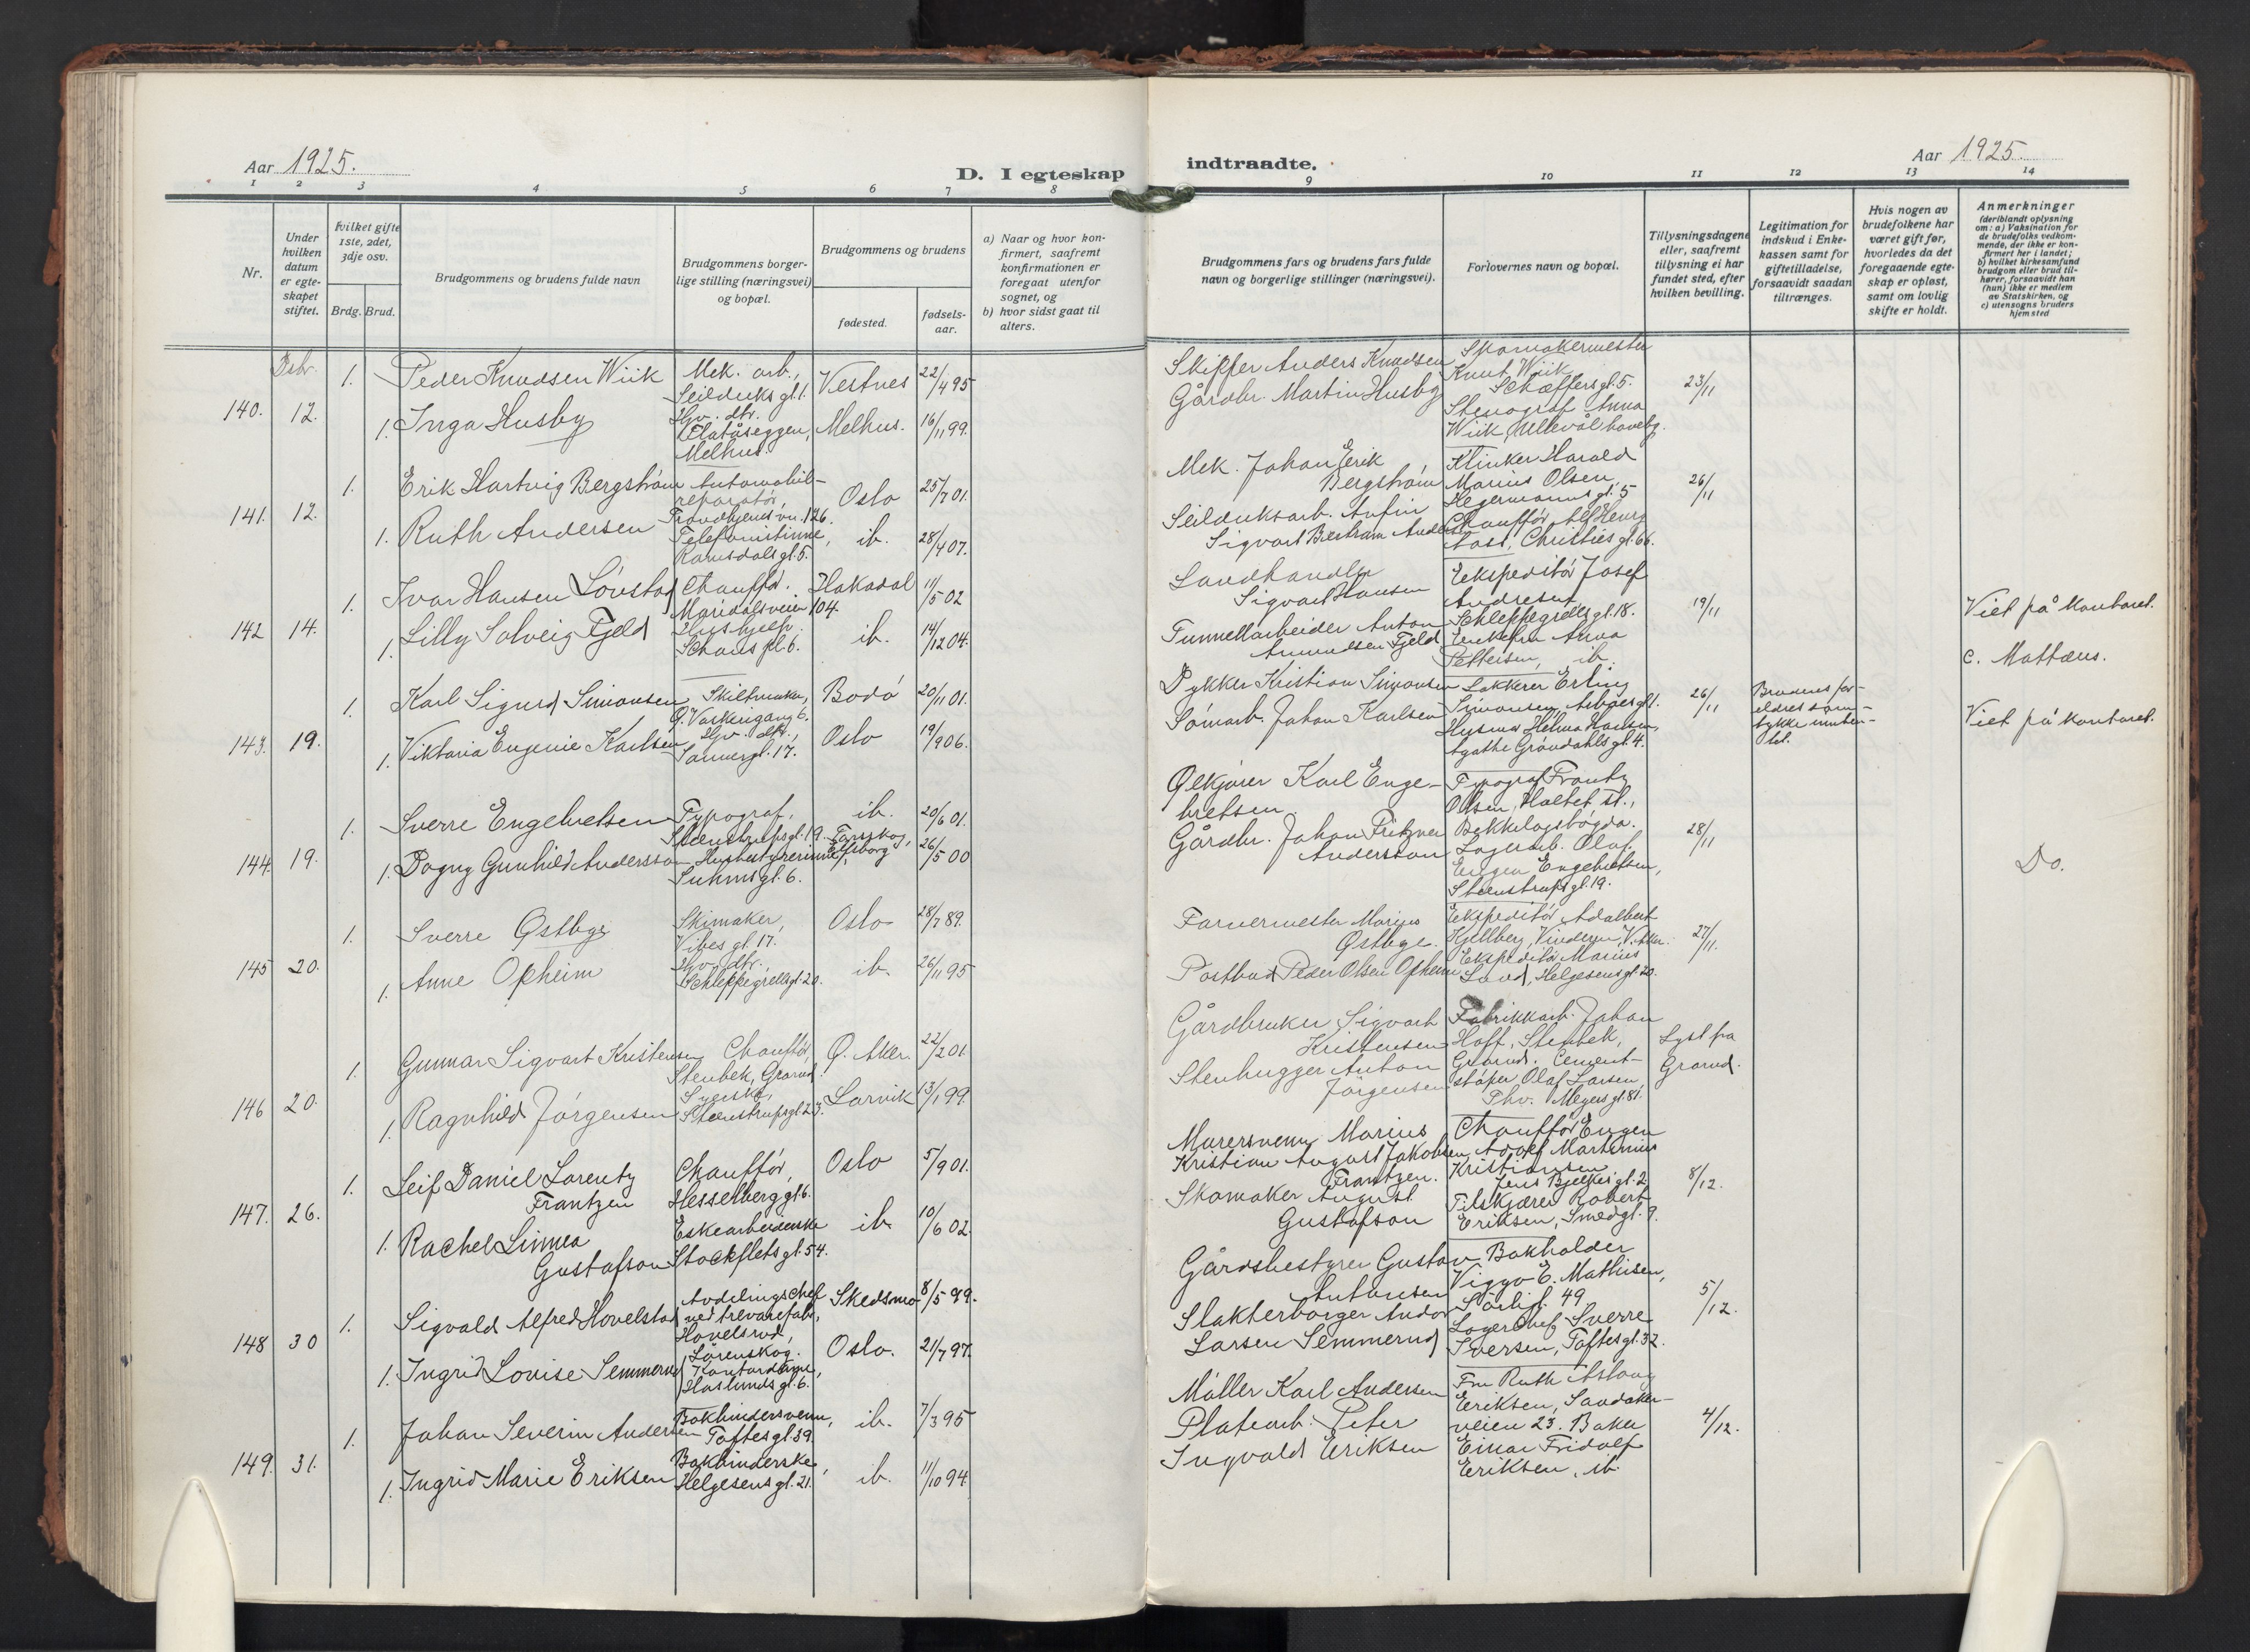 Aar 1925.
D. I egteskap
indtraadte.
Aar 1925.
1 2 3 4 5 6 7 8 9 10 11 12 13 14
Nr.
Under hvilken datum er egteskapet stiftet.
Hvilket gifte 1ste, 2det, 3dje osv.
Brdg. Brud.
Brudgommens og brudens fulde navn
Brudgommens borger-
lige stilling (næringsvei)
og bopæl.
Brudgommens og brudens
fødested.
fødsels-
aar.
a) Naar og hvor kon-
firmert, saafremt
konfirmationen er
foregaat utenfor
sognet, og
b) hvor sidst gaat til
alters.
Brudgommens fars og brudens fars fulde
navn og borgerlige stillinger (næringsvei).
Forlovernes navn og bopæl.
Tillysningsdagene
eller, saafremt
tillysning ei har
fundet sted, efter
hvilken bevilling.
Legitimation for
indskud i Enke-
kassen samt for
giftetilladelse,
forsaavidt saadan
tiltrænges.
Hvis nogen av
brudefolkene har
været gift før,
hvorledes da det
foregaaende egte-
skap er opløst,
samt om lovlig
skifte er holdt.
Anmerkninger
(deriblandt oplysning
om: a) Vaksination for
de brudefolks vedkom-
mende, der ikke er kon-
firmert her i landet;
b) hvilket kirkesamfund
brudgom eller brud til-
hører, forsaavidt han
(hun) ikke er medlem
av Statskirken, og
c) utensogns bruders
hjemsted
Dsbr.
140. 12.
1. Peder Knudsen Wiik
Mek. arb.,
Seilduksgt. 1.
Vestnes 22/4 95
1. Inga Husby
Hjv. dtr.
Flatåseggen,
Melhus.
Melhus. 16/11 99.
Skipper Anders Knudsen
Gårdbr. Martin Husby
Skomakermester
Knut Wiik
Schæffersgt. 5.
Stenograf Anna
Wiik, Ullevål haveby.
23/11
141. 12.
1. Erik Hartvig Bergstrøm
Automobil-
reparatør,
Trondhjemsvn. 126.
Oslo 25/7 01.
1. Ruth Andersen
Telefonistinne,
Ramsdalsgt. 5.
ib. 28/4 07.
Mek. Johan Erik
Bergstrøm
Seilduksarb. Anfin
Sigvart Bertram Andersen
Klinker Harald
Marius Olsen,
Hegermannsgt. 5
Chauffør Alf Henry
Aass, Christiesgt. 66.
26/11
142 14.
1. Ivar Hansen Løvstad
Chauffør.
Maridalsveien 104.
Hakadal 11/5 02
1. Lilly Solveig Fjeld
Hushjelp.
Schous pl. 6.
ib. 14/12 04.
Landhandler
Sigvart Hansen
Tunnellarbeider Anton
Amundsen Fjeld
Ekspeditør Josef
Andresen
Schleppegrellsgt. 18.
Enkefru Anna
Pettersen, ib.
19/11
Viet på kontoret.
c. Mattæus.
143. 19.
1. Karl Sigurd Simonsen
Skiltmaker,
Ø. Vaskerigang 6.
Bodø 20/11 01.
1. Viktoria Eugenie Karlsen
Hjv. dtr.,
Sannergt. 17.
Oslo 19/9 06.
Dykker Kristian Simonsen
Sømarb. Johan Karlsen
Lakkerer Erling
Simonsen, Asbjøsgt. 1.
Husmor Helma Karlsen,
Agathe Grøndahlsgt. 4.
26/11
Brudens for-
eldres sam-
tykke munt-
let.
Viet på kontoret.
144. 19.
1. Sverre Engebretsen
Typograf,
Steenstrupsgt. 19.
ib. 20/6 01.
1. Dagny Gunhild Andersson
Husbestyrerinne,
Suhmsgt. 6.
Torsskog,
Elfsborg
26/5 00
Ølkjører Karl Enge-
bretsen
Gårdbr. Johan Fritzner
Andersson
Typograf Frantz
Olsen, Holtet st.,
Bekkelagshøgda.
Lagerarb. Olaf
Eugen Engebretsen,
Steenstrupsgt. 19.
28/11
Do.
145 20.
1. Sverre Østbye
Skimaker,
Vibes gt. 17.
Oslo 28/7 89.
1. Anne Opheim
Hjv. dtr.
Schleppegrellsgt. 20.
ib. 26/11 95
Farvermester Marius
Østbye.
Postbud Peder Olsen Opheim
Ekspeditør Adalbert
Kjellberg, Vinderen, V. Aker.
Ekspeditør Marius
Lund, Helgesensgt. 20.
27/11.
146 20.
1. Gunnar Sigvart Kristensen
Chauffør,
Stenbek, Grorud
Ø. Aker. 22/2 01.
1. Ragnhild Jørgensen
Syerske,
Steenstrupsgt. 23.
Larvik 13/1 99.
Gårdbruker Sigvart
Kristensen
Stenhugger Anton
Jørgensen
Fabrikkarb. Johan
Hoff, Stenbek,
Grorud. Cement-
støper Olaf Larsen,
Thv. Meyersgt. 81.
Lyst fra
Grorud.
147. 26.
1. Leif Daniel Lorentz
Frantzen
Chauffør,
Hesselberggt. 6.
Oslo 5/9 01.
1. Rachel Linnea
Gustafson
Eskearbeiderske
Stockfletsgt. 54.
ib. 10/6 02.
Murersvenn Marius
Kristian August Jakobsen
Frantzen.
Skomaker August
Gustafson
Chauffør Eugen
Adolf Martinius
Kristiansen
Jens Bjelkesgt. 2
Filskjærer Robert
Eriksen, Smedgt. 9.
8/12.
148 30
1. Sigvald Alfred Hovelstad
Avdelingschef
ved trevarefabr.,
Hovelsrud,
Lørenskog.
Skedsmo 8/5 99.
1. Ingrid Lovise Semmerud
Kontordame,
Haslundsgt. 6.
Oslo. 21/7 97.
Gårdsbestyrer Gustav
Antonsen
Slakterborger Andor
Larsen Semmerud
Bokholder
Viggo E. Mathisen,
Sørligt. 49
Lagerchef Sverre
Iversen, Toftesgt. 32.
5/12.
149. 31.
1. Johan Severin Andersen
Bokbindersvenn,
Toftesgt. 39.
ib. 7/3 95
1. Ingrid Marie Eriksen
Bokbinderske,
Helgesensgt. 21.
ib. 11/10 94
Møller Karl Andersen
Platearb. Peter
Ingvald Eriksen
Fru Ruth Aslaug
Eriksen, Sandaker-
veien 23. Baker
Einar Fridolf
Eriksen, ib.
4/12.